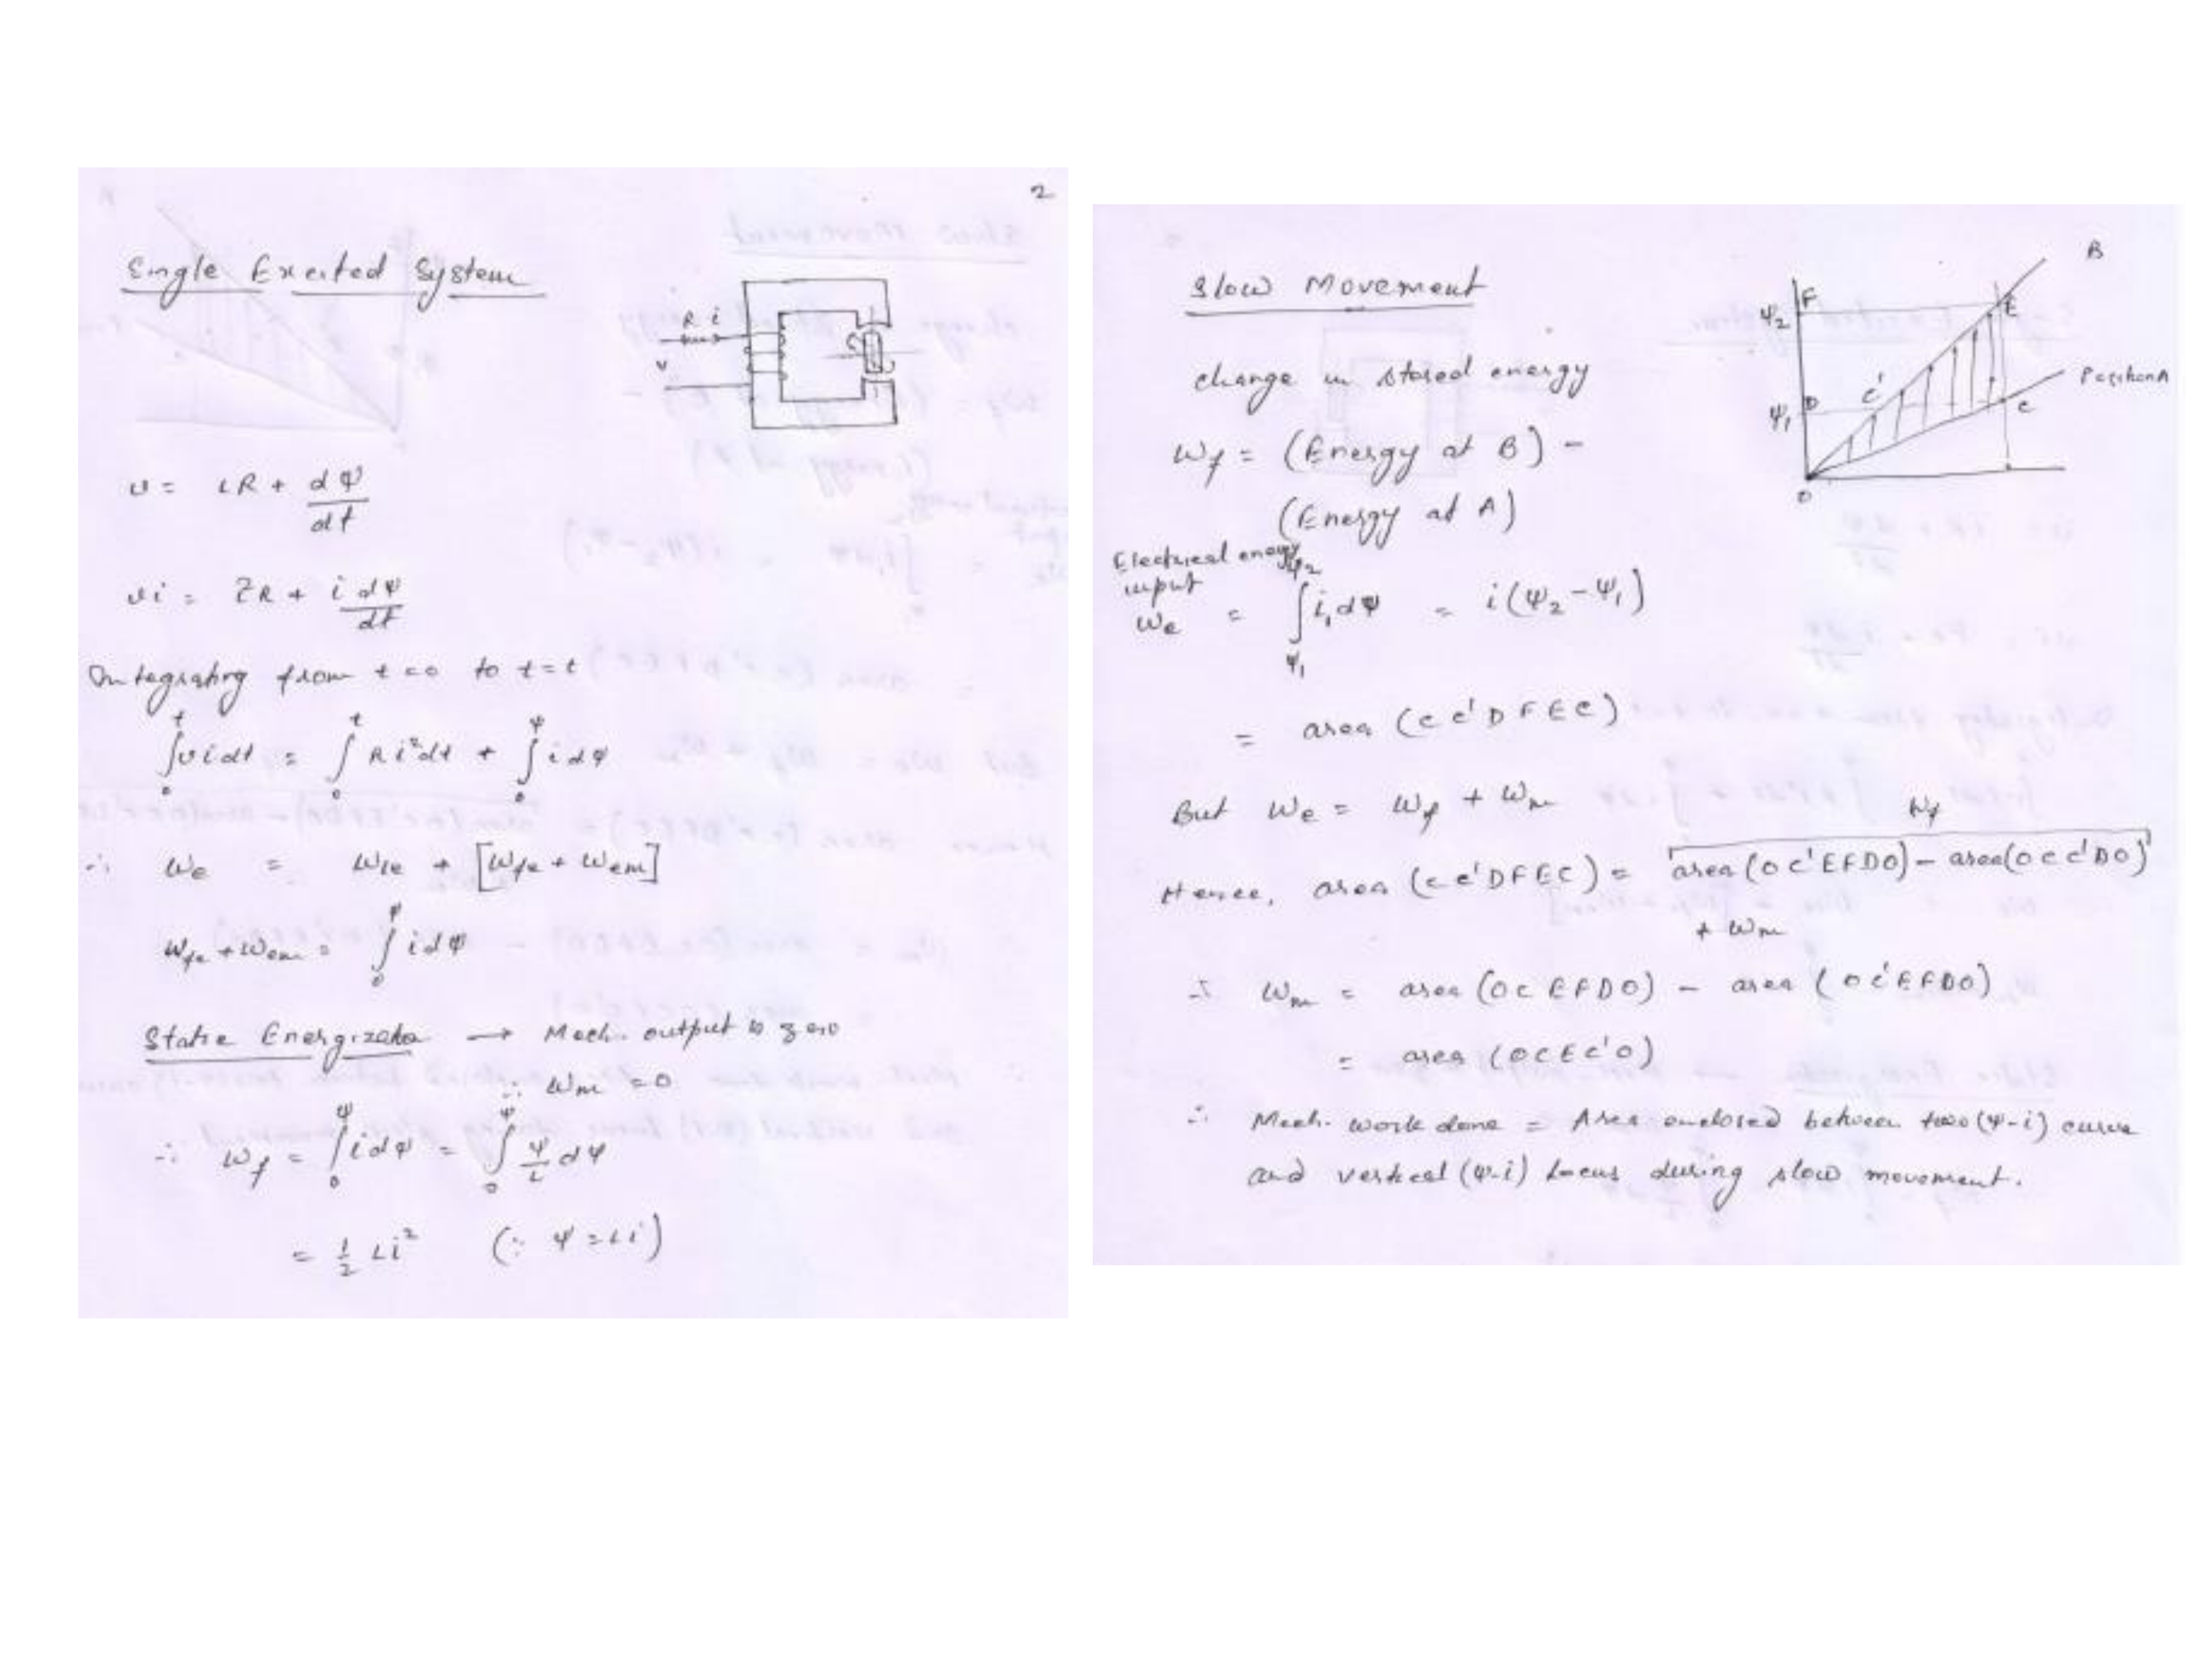 2
Single Excited System
R i
v
v = iR + dψ/dt
vi = i²R + i dψ/dt
Integrating from t=0 to t=t
∫₀ᵗ v i dt = ∫₀ᵗ R i² dt + ∫₀^ψ i dψ
∴ We = Wle + [Wfe + Wem]
Wfe + Wem = ∫₀^ψ i dψ
Static Energization → Mech. output is zero
∴ Wm = 0
∴ Wf = ∫₀^ψ i dψ = ∫₀^ψ ψ/L dψ
= 1/2 Li² (∵ ψ = Li)
Slow Movement
B
ψ2 F E
Position A
ψ1 D C' C
O
change in stored energy
Wf = (Energy at B) -
(Energy at A)
Electrical energy
input
We = ∫_ψ1^ψ2 i₁ dψ = i(ψ2 - ψ1)
= area (CC'DFEC)
But We = Wf + Wm
Wf
Hence, area (CC'DFEC) = area (OC'EFDO) - area (OCC'DO)
+ Wm
∴ Wm = area (OCEFDO) - area (OC'EFDO)
= area (OCEC'O)
∴ Mech. work done = Area enclosed between two (ψ-i) curve
and vertical (ψ-i) locus during slow movement.